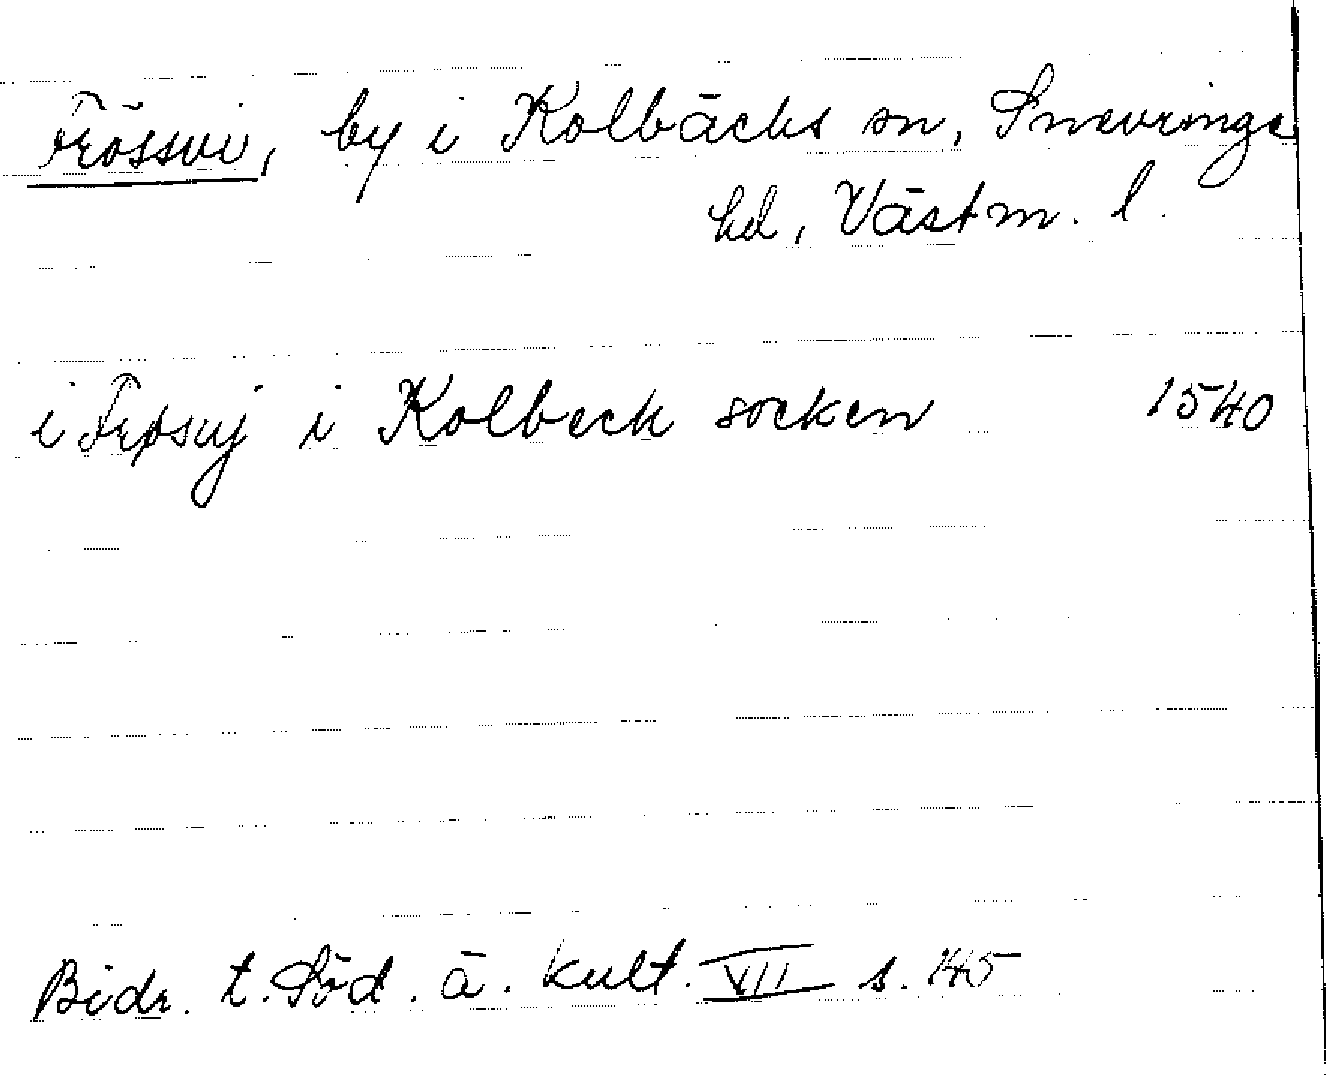 Frössvi, by i Kolbäcks sn, Snevringe
hd, Västm. l.
i Frøsvj i Kolbeck socken 1540
Bidr. t. Söd. ä. kult. VII s. 145